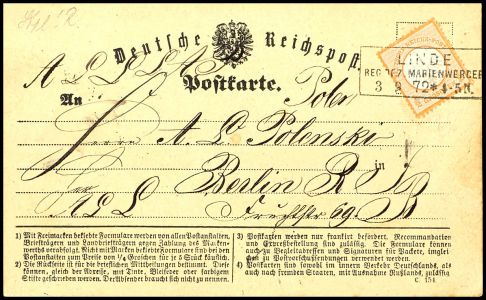 Deutsche Reichspost.
LINDE
REG. BEZ. MARIENWERDER
3 9 72 * 4-5N.
Postkarte.
An
Herrn A. L. Polenski
in
Berlin
Fruchtstr 69.
1) Mit Freimarken beklebte Formulare werden von allen Postanstalten, Briefträgern und Landbriefträgern gegen Zahlung des Markenwerths verabfolgt. Nicht mit Marken beklebte Formulare sind bei den Postanstalten zum Preise von ¼ Groschen für je 5 Stück käuflich.
2) Die Rückseite ist für die brieflichen Mittheilungen bestimmt. Diese können, gleich der Adresse, mit Tinte, Bleifeder oder farbigem Stifte geschrieben werden. Der Absender braucht sich nicht zu nennen.
3) Postkarten werden nur frankirt befördert. Recommandation und Expreßbestellung sind zulässig. Die Formulare können auch zu Begleitadressen und Signaturen für Packete, imgleichen zu Postvorschußsendungen verwendet werden.
4) Postkarten sind sowohl im innern Verkehr Deutschlands, als auch nach fremden Staaten, mit Ausnahme Rußlands, zulässig
C. 154.